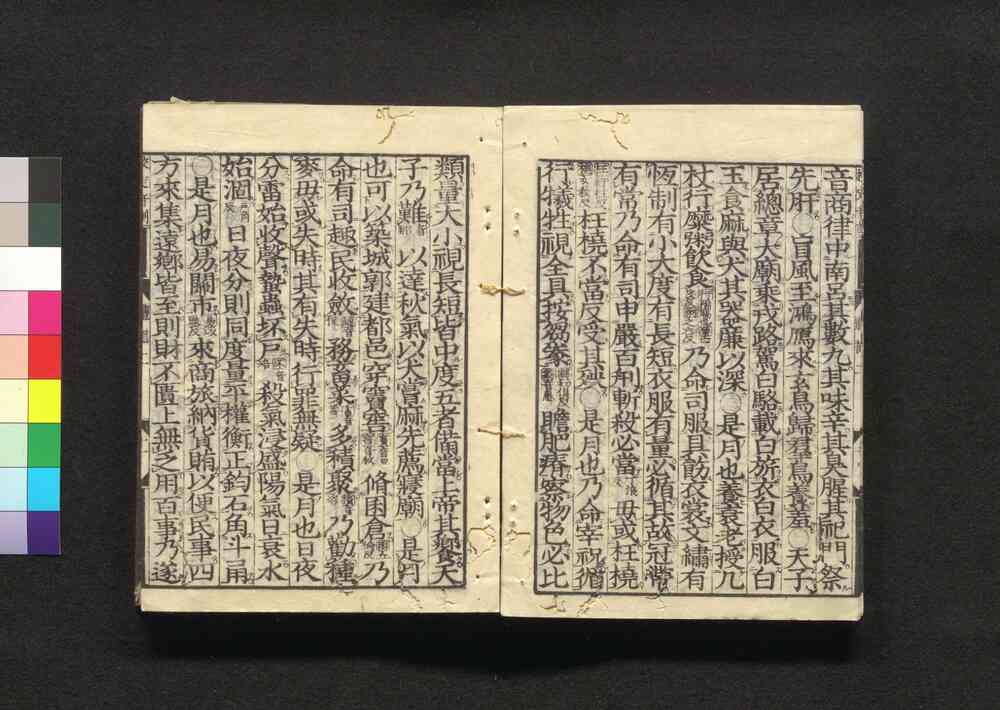 音商律中南呂其數九其味辛其臭腥其祀門祭
先肝○盲風至鴻鴈來玄鳥歸羣鳥養羞○天子
居總章大廟乘戎路駕白駱載白旂衣白衣服白
玉食麻與犬其器廉以深○是月也養衰老授几
杖行糜粥飲食乃命司服具飭衣裳文繡有
恆制有小大度有長短衣服有量必循其故冠帶
有常乃命有司申嚴百刑斬殺必當毋或枉橈
枉橈不當反受其殃○是月也乃命宰祝循
行犧牲視全具按芻豢瞻肥瘠察物色必比
類量大小視長短皆中度五者備當上帝其饗天
子乃難以達秋氣以犬嘗麻先薦寢廟○是月
也可以築城郭建都邑穿竇窖脩囷倉乃
命有司趣民收斂務畜菜多積聚乃勸種
麥毋或失時其有失時行罪無疑○是月也日夜
分雷始收聲蟄蟲坏戸殺氣浸盛陽氣日衰水
始涸日夜分則同度量平權衡正鈞石角斗甬
○是月也易關市來商旅納貨賄以便民事四
方來集遠鄉皆至則財不匱上無乏用百事乃遂